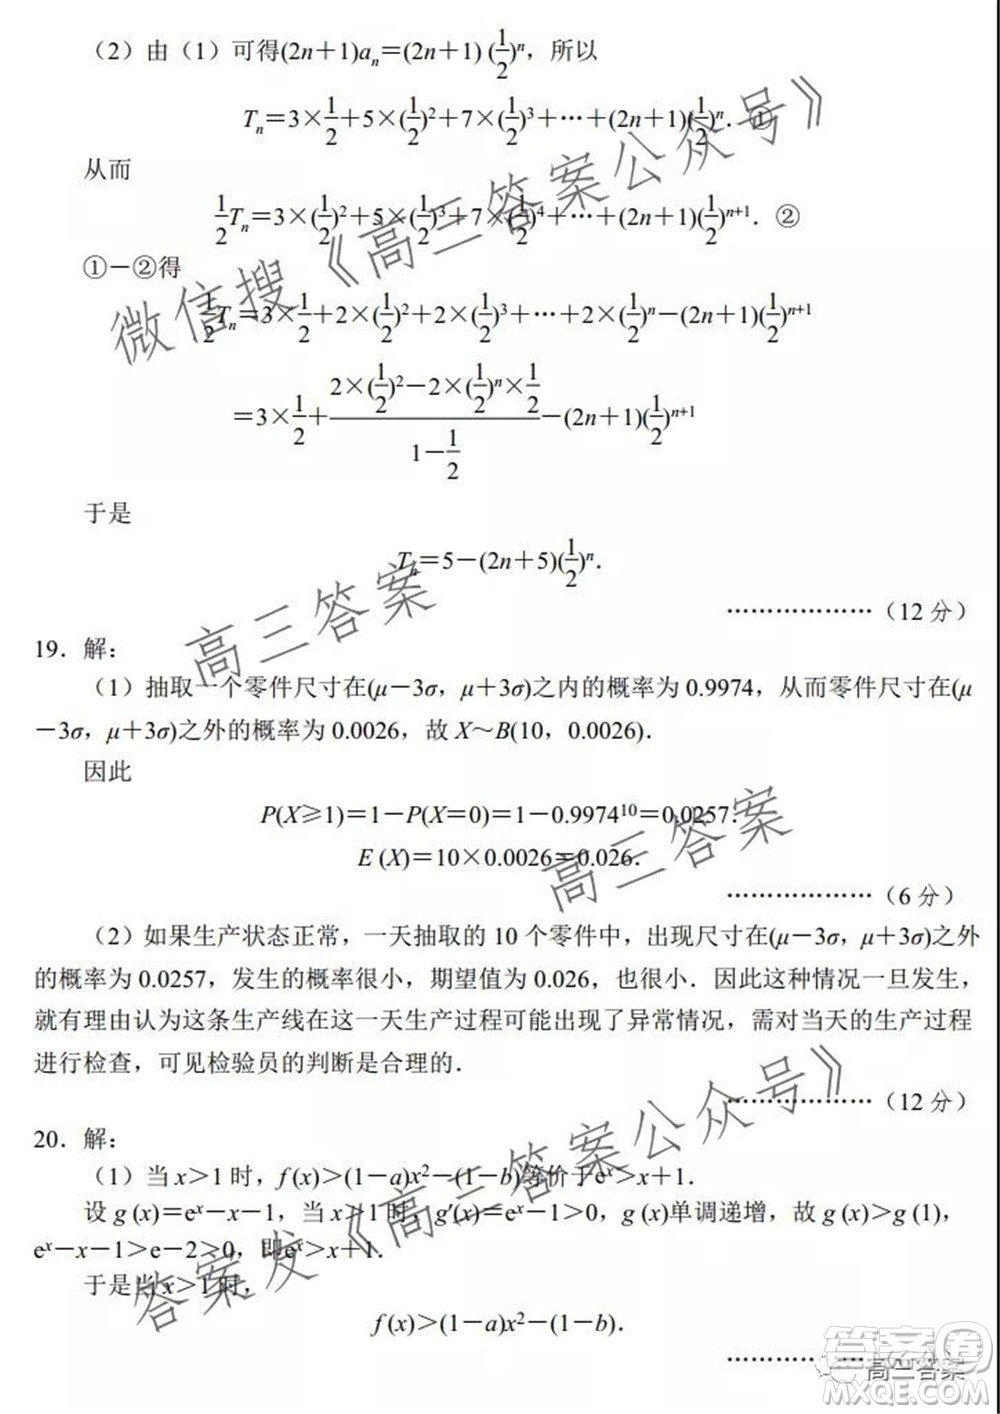 （2）由（1）可得(2n＋1)aₙ＝(2n＋1)(1/2)ⁿ，所以
Tₙ＝3×1/2＋5×(1/2)²＋7×(1/2)³＋…＋(2n＋1)(1/2)ⁿ．①
从而
1/2Tₙ＝3×(1/2)²＋5×(1/2)³＋7×(1/2)⁴＋…＋(2n＋1)(1/2)ⁿ⁺¹．②
①－②得
1/2Tₙ＝3×1/2＋2×(1/2)²＋2×(1/2)³＋…＋2×(1/2)ⁿ－(2n＋1)(1/2)ⁿ⁺¹
＝3×1/2＋(2×(1/2)²－2×(1/2)ⁿ×1/2)/(1－1/2)－(2n＋1)(1/2)ⁿ⁺¹
于是
Tₙ＝5－(2n＋5)(1/2)ⁿ．
………………（12 分）
19．解：
（1）抽取一个零件尺寸在(μ－3σ，μ＋3σ)之内的概率为 0.9974，从而零件尺寸在(μ
－3σ，μ＋3σ)之外的概率为 0.0026，故 X～B(10，0.0026)．
因此
P(X≥1)＝1－P(X＝0)＝1－0.9974¹⁰＝0.0257．
E (X)＝10×0.0026＝0.026．
………………（6 分）
（2）如果生产状态正常，一天抽取的 10 个零件中，出现尺寸在(μ－3σ，μ＋3σ)之外
的概率为 0.0257，发生的概率很小，期望值为 0.026，也很小．因此这种情况一旦发生，
就有理由认为这条生产线在这一天生产过程可能出现了异常情况，需对当天的生产过程
进行检查，可见检验员的判断是合理的．
………………（12 分）
20．解：
（1）当 x＞1 时，f (x)＞(1－a)x²－(1－b)等价于eˣ＞x＋1．
设 g (x)＝eˣ－x－1，当 x＞1 时，g′(x)＝eˣ－1＞0，g (x)单调递增，故 g (x)＞g (1)，
eˣ－x－1＞e－2＞0，即eˣ＞x＋1．
于是当 x＞1 时，
f (x)＞(1－a)x²－(1－b)．
………………
微信搜《高三答案公众号》
高三答案
高三答案
答案发《高三答案公众号》
高三答案
答案卷
MXQE.COM